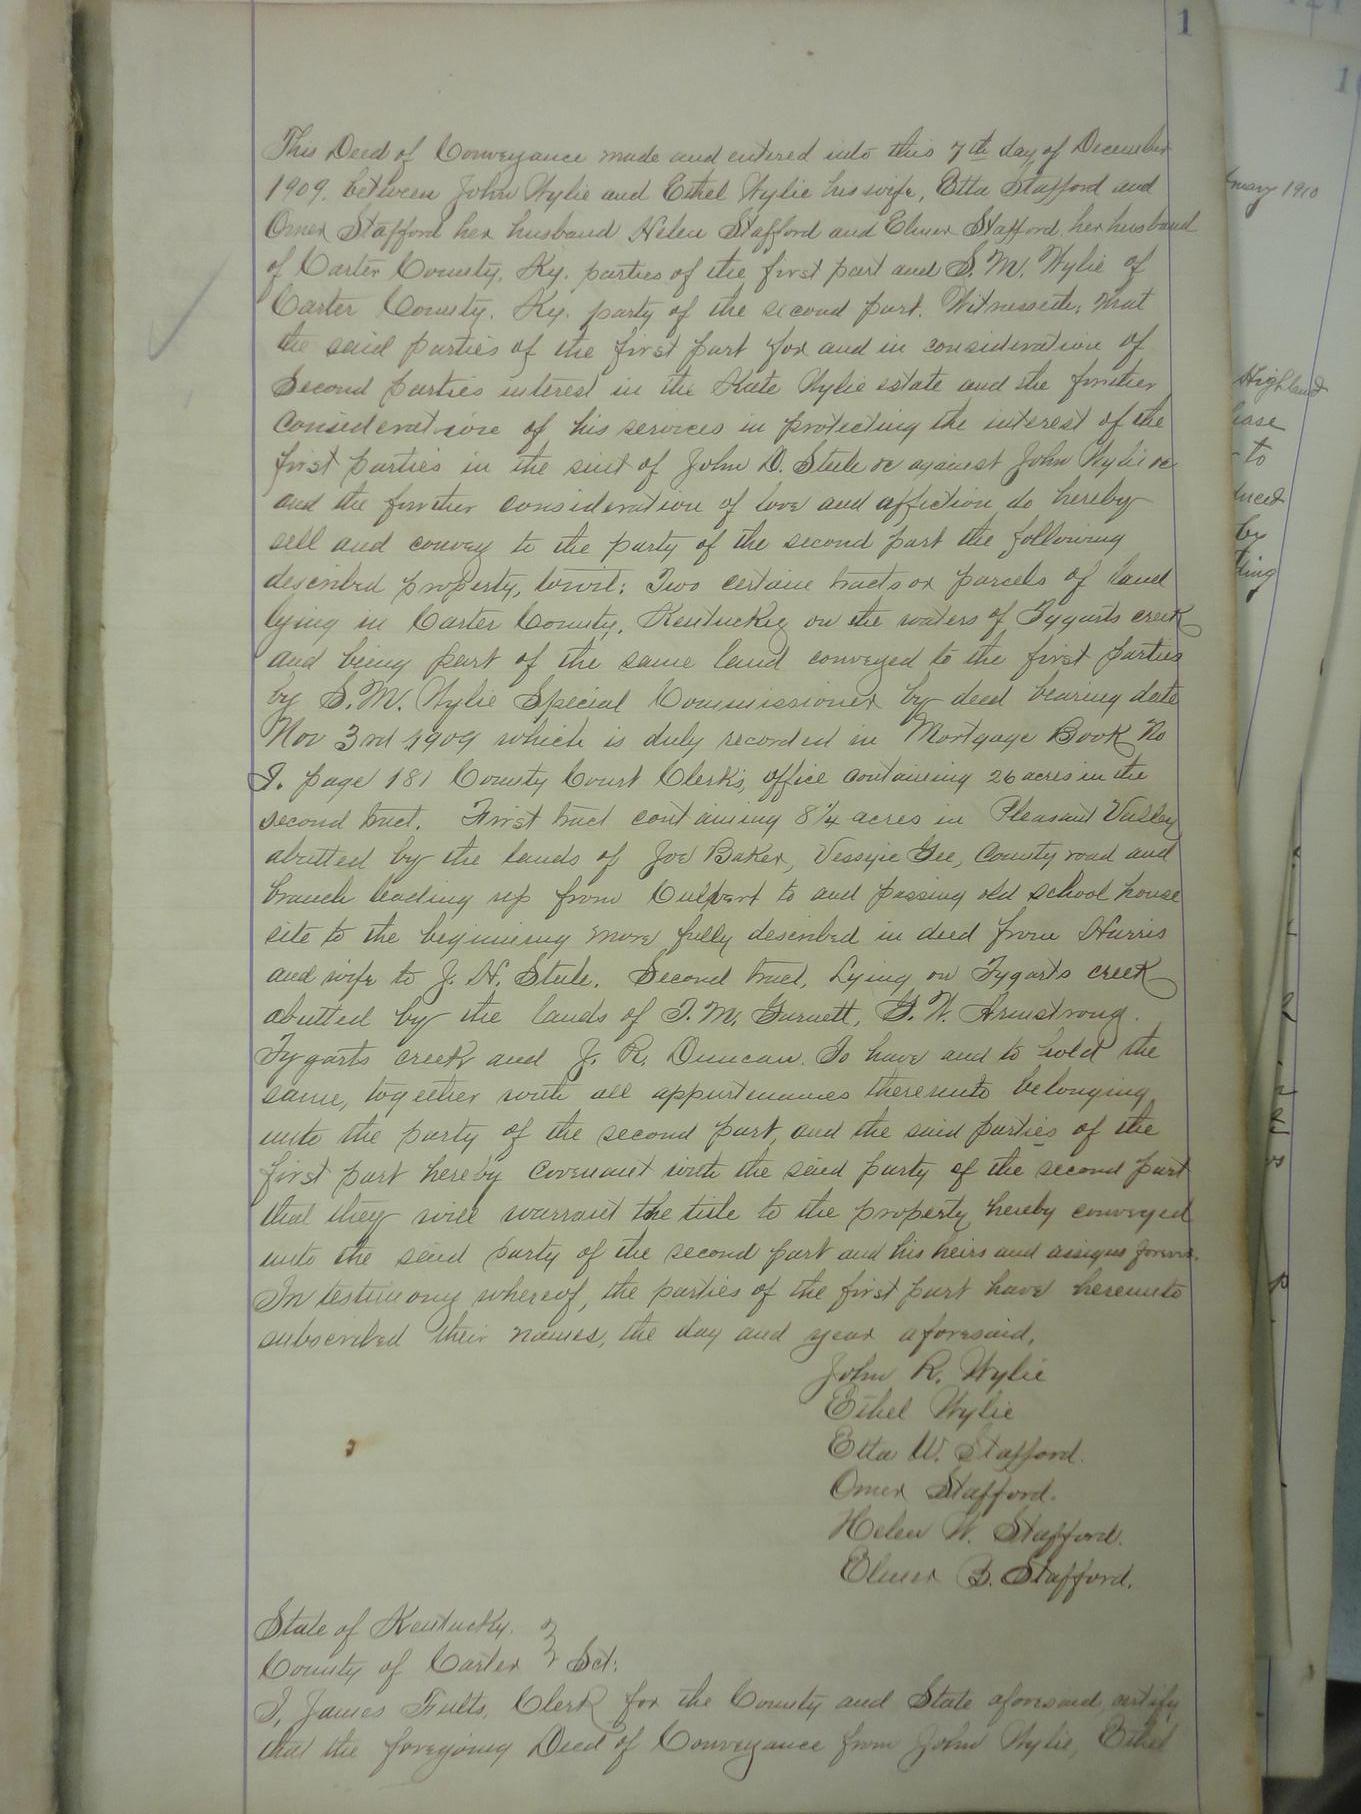 1
This Deed of Conveyance made and entered into this 7th day of December
1909, between John Wylie and Ethel Wylie his wife, Etta Stafford and
Omer Stafford her husband Helen Stafford and Elmer Stafford, her husband
of Carter County, Ky. parties of the first part and S. M. Wylie of
Carter County. Ky. party of the second part. Witnesseth, that
the said parties of the first part for and in consideration of
Second parties interest in the Kate Wylie estate and the further
consideration of his services in protecting the interest of the
first parties in the suit of John D. Steele &c against John Wylie &c
and the further consideration of love and affection do hereby
sell and convey to the party of the second part the following
described property, towit: Two certain tracts or parcels of land
lying in Carter County, Kentucky on the waters of Tygarts creek
and being part of the same land conveyed to the first parties
by S. M. Wylie Special Commissioner by deed bearing date
Nov 3rd 1909 which is duly recorded in Mortgage Book No
page 181 County Court Clerk's, office containing 26 acres in the
second tract. First tract containing 8 1/4 acres in Pleasant Valley
abutted by the lands of Joe Baker, Gee, County road and
branch leading up from Culvert to and passing old school house
site to the beginning more fully described in deed from Harris
and wife to J. H. Steele. Second tract, Lying on Tygarts creek
abutted by the lands of T. M. Garnett, G. W. Armstrong.
Tygarts creek and J. R. Duncan. To have and to hold the
same, together with all appurtenances thereunto belonging
unto the party of the second part, and the said parties of the
first part hereby covenant with the said party of the second part
that they will warrant the title to the property hereby conveyed
unto the said party of the second part and his heirs and assigns forever.
In testimony whereof, the parties of the first part have hereunto
subscribed their names, the day and year aforesaid.
John R. Wylie
Ethel Wylie
Etta W. Stafford.
Omer Stafford.
Helen W. Stafford.
Elmer B. Stafford.
State of Kentucky.
County of Carter Sct:
I, James Fults, Clerk for the County and State aforesaid, certify
that the foregoing Deed of Conveyance from John Wylie, Ethel
1910
Highland
to
by